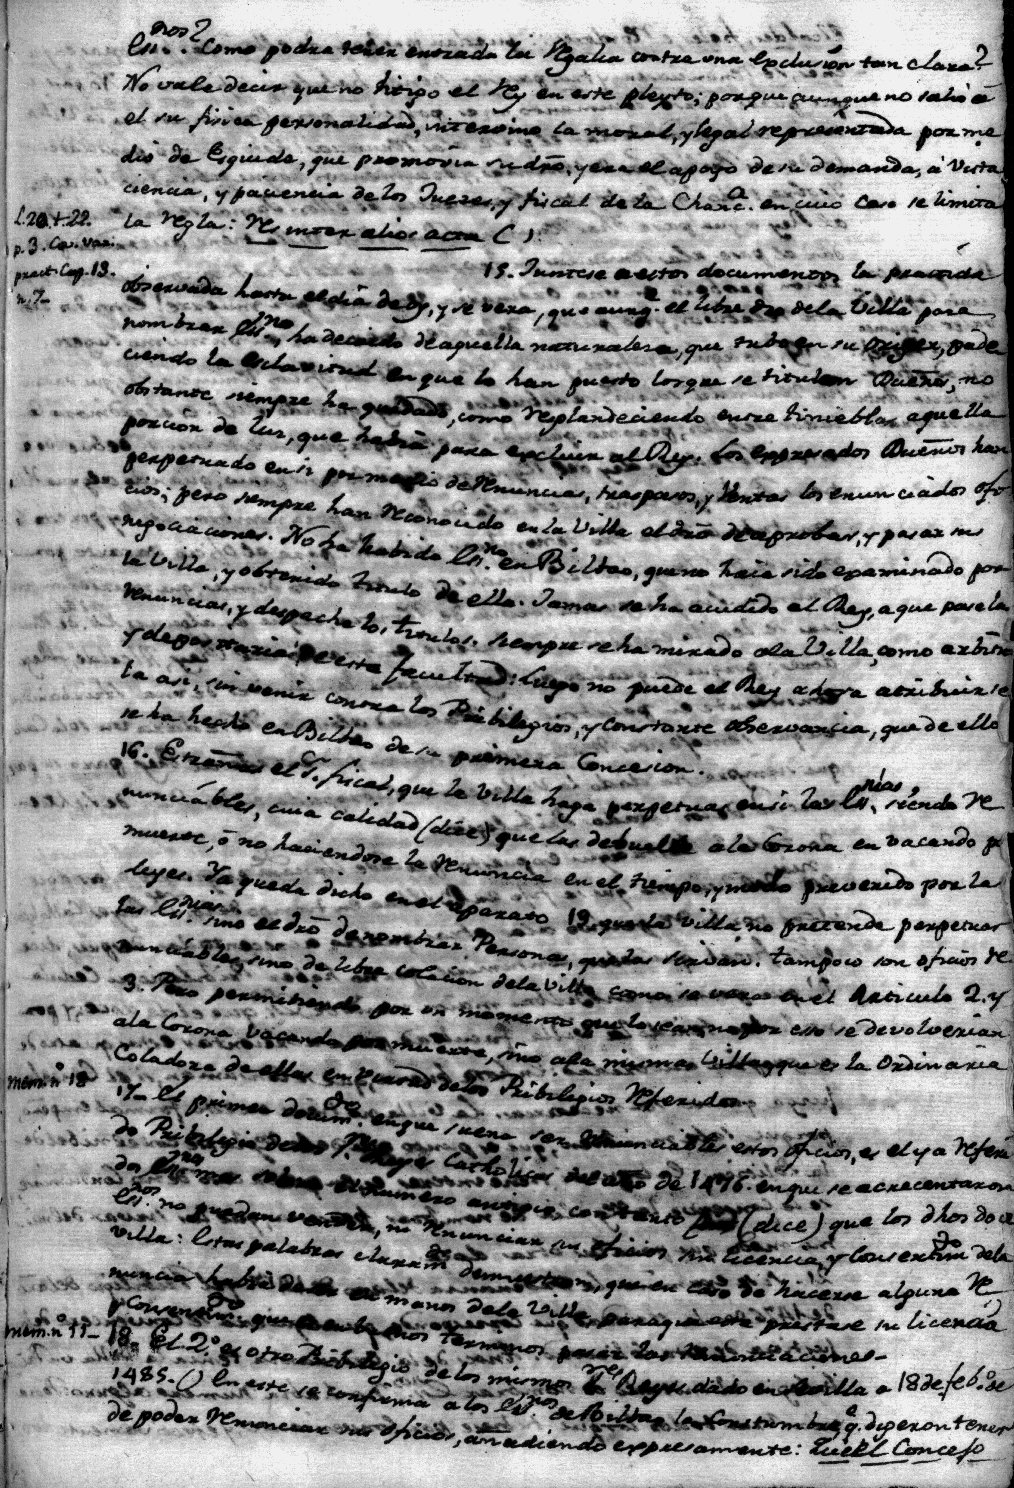 Essnos? Como podra tener entrada la Regalia contra una exclusion tan clara?
No vale decir que no litigo el Rey en este pleyto; porque aunque no salio a
el su fisica personalidad, intervino la moral, y legal representada por me
dio de Esquide, que promovia su dro, y era el apoyo de su demanda, à vista
ciencia, y paciencia de los Jueces, y fiscal de la Chanca. en cuio caso se limita
la regla: Res inter alios acta ( )
L. 20. t. 22.
p. 3. Cov. var.
pract. Cap. 13.
n. 7_
15. Juntese a estos documentos la practica
observada hasta el dia de oy, y se vera, que aunqe. el libre dro dela Villa para
nombrar Essnos, ha decaido de aquella naturaleza, que tubo en su origen, pade
ciendo la esclavitud en que lo han puesto los que se titulan Dueños, no
obstante siempre ha quedado, como resplandeciendo entre tinieblas aquella
porcion de luz, que habia para excluir al Rey. Los expresados Dueños han
perpetuado en si por medio de renuncias, trasposos, y ventas los enunciados ofi
cios; pero siempre han reconocido en la Villa el dro de aprobar, y pasar sus
negociaciones. No ha habido Essno. en Bilbao, que no haia sido examinado por
la Villa, y obtenido titulo de ella. Jamas se ha acudido al Rey, a que pase las
renuncias, y despache los titulos. siempre se ha mirado ala Villa, como arbitra
y depositaria de esta facultad: luego no puede el Rey ahora atribuirse
la asi, sin venir contra los Pribilegios, y constante observancia, que de ella
se ha hecho en Bilbao de su primera Concesion.
16. Estraña el Sr. fiscal, que la Villa haga perpetuas en si las Essnias, siendo re
nunciábles, cuia calidad (dice) que las debuelbe ala Corona en vacando pr
muerte, ò no haciendose la renuncia en el tiempo, y modo prevenido por las
leyes. Ya queda dicho en el aparato 19 que la Villa no pretende perpetuar
las Essnias sino el dro de nombrar Personas, que las sirvan. tampoco son oficios re
nunciábles, sino de libre colacion dela Villa como se vera en el Articulo 2. y
3. Pero permitiendo por un momento que lo sean, no por eso se devolverian
ala Corona vacando por muerte, sino ala misma Villa, que es la Ordinaria
Coladora de ellas en virtud de los Pribilegios referidos.
Mem. no. 18
17_ El primer docum.to en que suena ser renunciábles estos oficios, es el ya referi
do Pribilegio de los Sres. Reyes Catholicos del año de 1476. en que se acrecentaron
dos Essnos mas sobre el numero antiguo con tanto (dice) que los dhos doce
Essnos. no puedan vender, ni renunciar sus oficios sin licencia, y Consentim.to dela
Villa: Estas palabras claram.te demuestran, que en caso de hacerse alguna re
nuncia habia de ser en manos dela Villa, para que esta prestase su licencia
y Consentim.to que en ambos terminos pasar las renunciaciones_
Mem. no. 11_
18. El 2o. es otro Pribilegio de los mismos Sres. Reyes dado en Sevilla a 18 de feb.o de
1485. ( ) En este se confirma a los Essnos de Bilbao la Costumbre, qe. digeron tener
de poder renunciar sus oficios, añadiendo expresamente: Que el Concejo